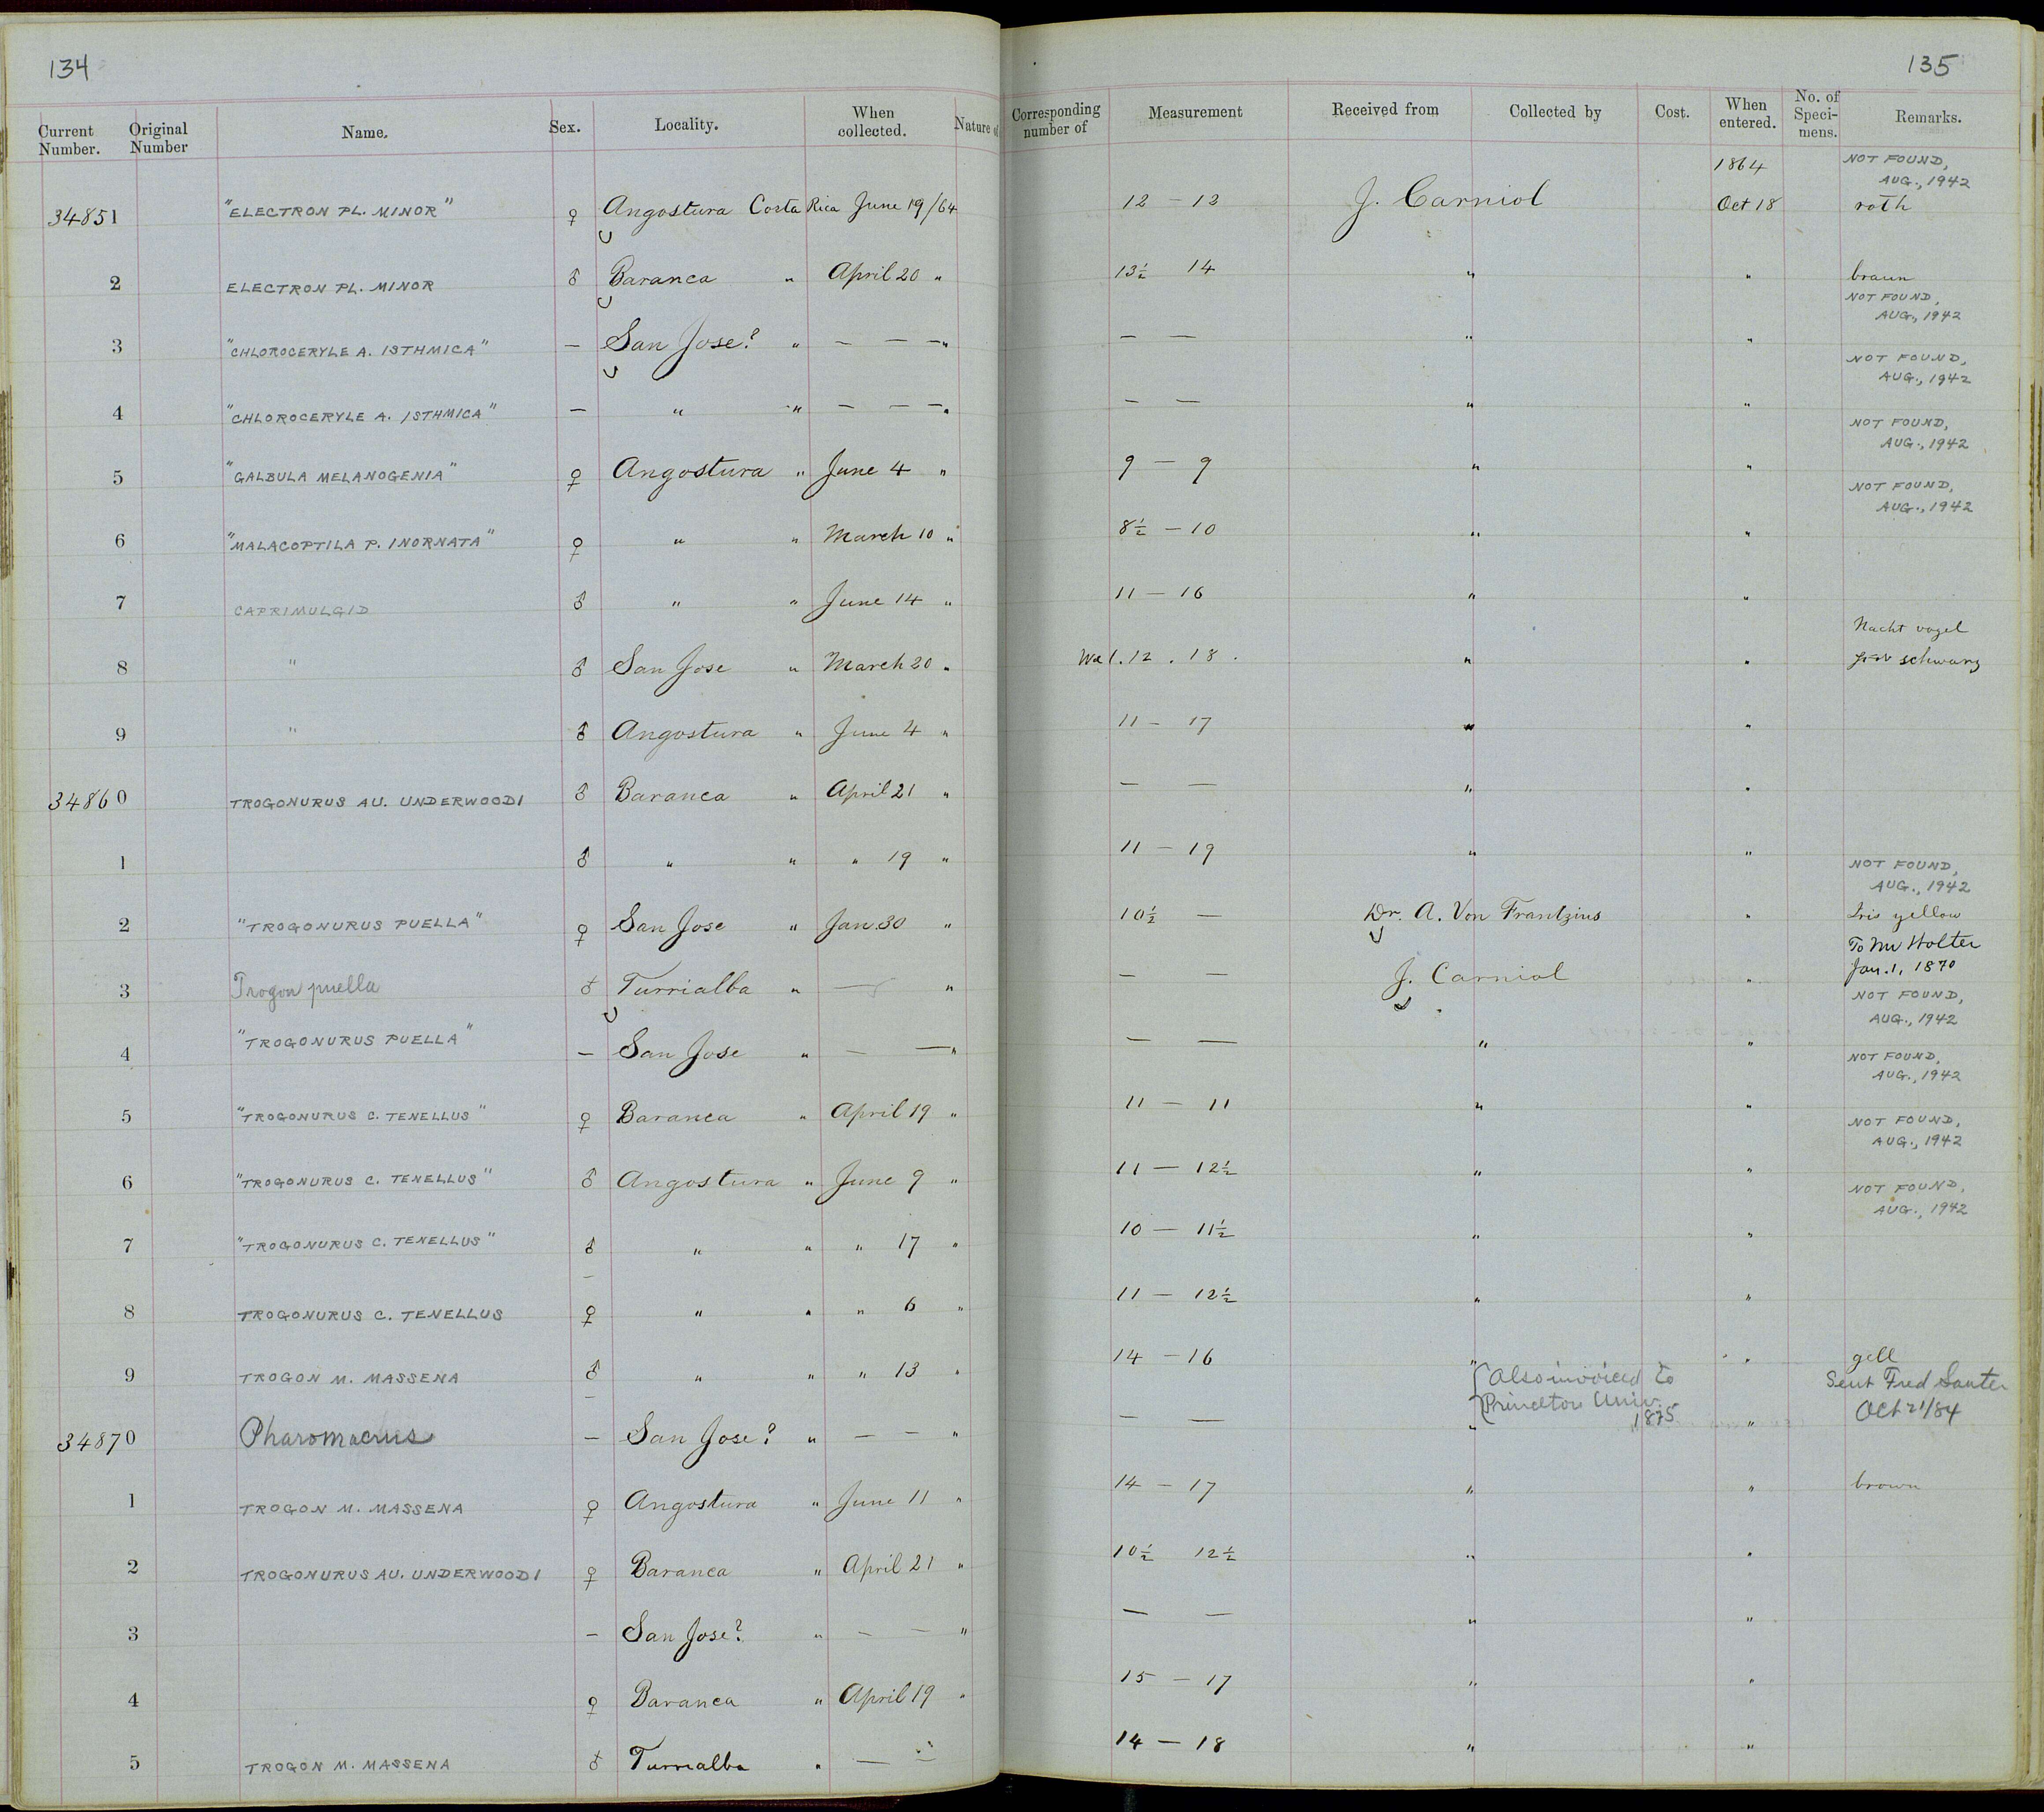 134
135
Current Number. Original Number Name. Sex. Locality. When collected. Nature of Corresponding number of Measurement Received from Collected by Cost. When entered. No. of Speci-mens. Remarks.
1864 NOT FOUND, AUG., 1942
34851 "ELECTRON PL. MINOR" ♀ Angostura Costa Rica June 19/64 12 — 13 J. Carniol Oct 18 roth
2 ELECTRON PL. MINOR ♂ Baranca " April 20 " 13½ 14 " " braun
NOT FOUND, AUG., 1942
3 "CHLOROCERYLE A. ISTHMICA" — San Jose? " — — — " — — " "
NOT FOUND, AUG., 1942
4 "CHLOROCERYLE A. ISTHMICA" — " " — — — " — — " "
NOT FOUND, AUG., 1942
5 "GALBULA MELANOGENIA" ♀ Angostura " June 4 " 9 — 9 " "
NOT FOUND, AUG., 1942
6 "MALACOPTILA P. INORNATA" ♀ " " March 10 " 8½ — 10 " "
7 CAPRIMULGID ♂ " " June 14 " 11 — 16 " "
Nacht vogel
8 " ♂ San Jose " March 20 " 12 . 18 . " " schwarz
9 " ♂ Angostura " June 4 " 11 — 17 " "
34860 TROGONURUS AU. UNDERWOODI ♂ Baranca " April 21 " — — " "
1 ♂ " " " 19 " 11 — 19 " "
NOT FOUND, AUG., 1942
2 "TROGONURUS PUELLA" ♀ San Jose " Jan. 30 " 10½ — Dr. A. Von Frantzius " Iris yellow
To Mr Holter
3 Trogon puella ♂ Turrialba " — " — — J. Carniol " Jan. 1, 1870
NOT FOUND, AUG., 1942
4 "TROGONURUS PUELLA" — San Jose " — — " — — " "
NOT FOUND, AUG., 1942
5 "TROGONURUS C. TENELLUS" ♀ Baranca " April 19 " 11 — 11 " "
NOT FOUND, AUG., 1942
6 "TROGONURUS C. TENELLUS" ♂ Angostura " June 9 " 11 — 12½ " "
NOT FOUND, AUG., 1942
7 "TROGONURUS C. TENELLUS" ♂ " " " 17 " 10 — 11½ " "
8 TROGONURUS C. TENELLUS ♀ " " " 6 " 11 — 12½ " "
9 TROGON M. MASSENA ♂ " " " 13 " 14 — 16 " " gell
Also invoiced to Sent Fred Sauter
Princeton Univ. 1875 Oct 21/84
34870 Pharomacrus — San Jose? " — — " — — " "
1 TROGON M. MASSENA ♀ Angostura " June 11 " 14 — 17 " " brown
2 TROGONURUS AU. UNDERWOODI ♀ Baranca " April 21 " 10½ 12½ " "
3 — San Jose? " — — " — — " "
4 ♀ Baranca " April 19 " 15 — 17 " "
5 TROGON M. MASSENA ♂ Turrialba " — — " 14 — 18 " "